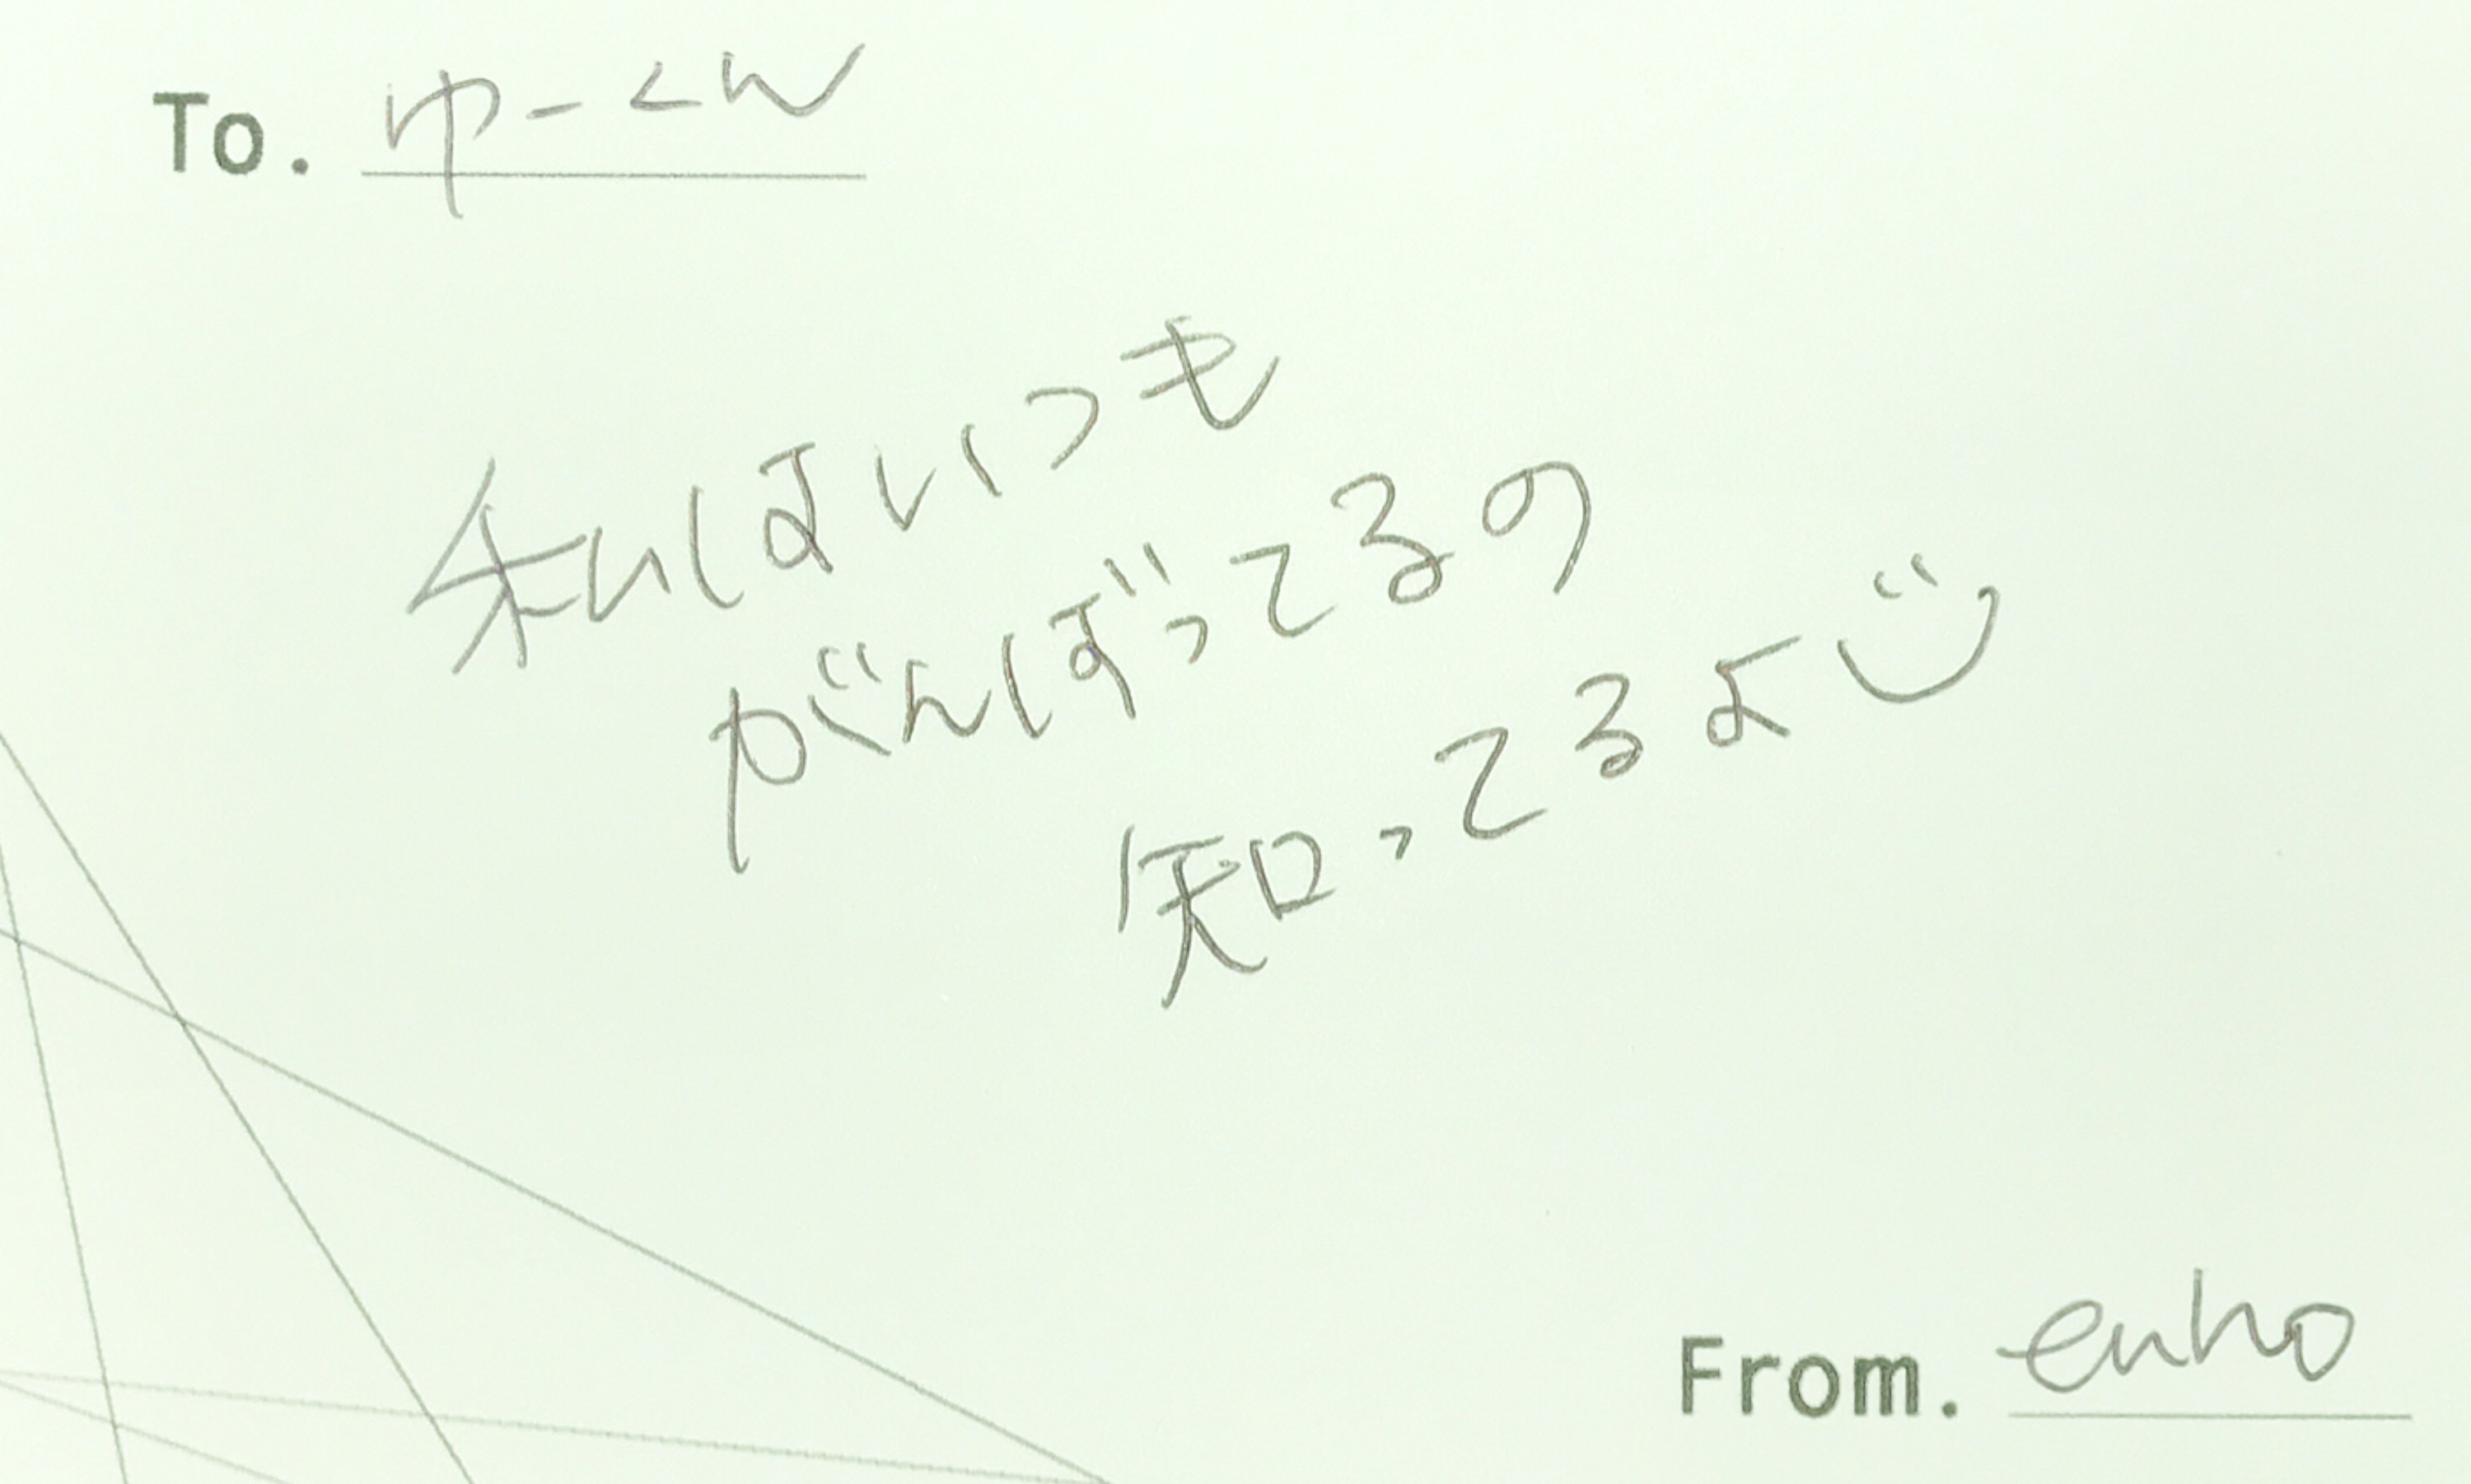 To. ゆーくん
私はいつも
がんばってるの
知ってるよ
From. enho